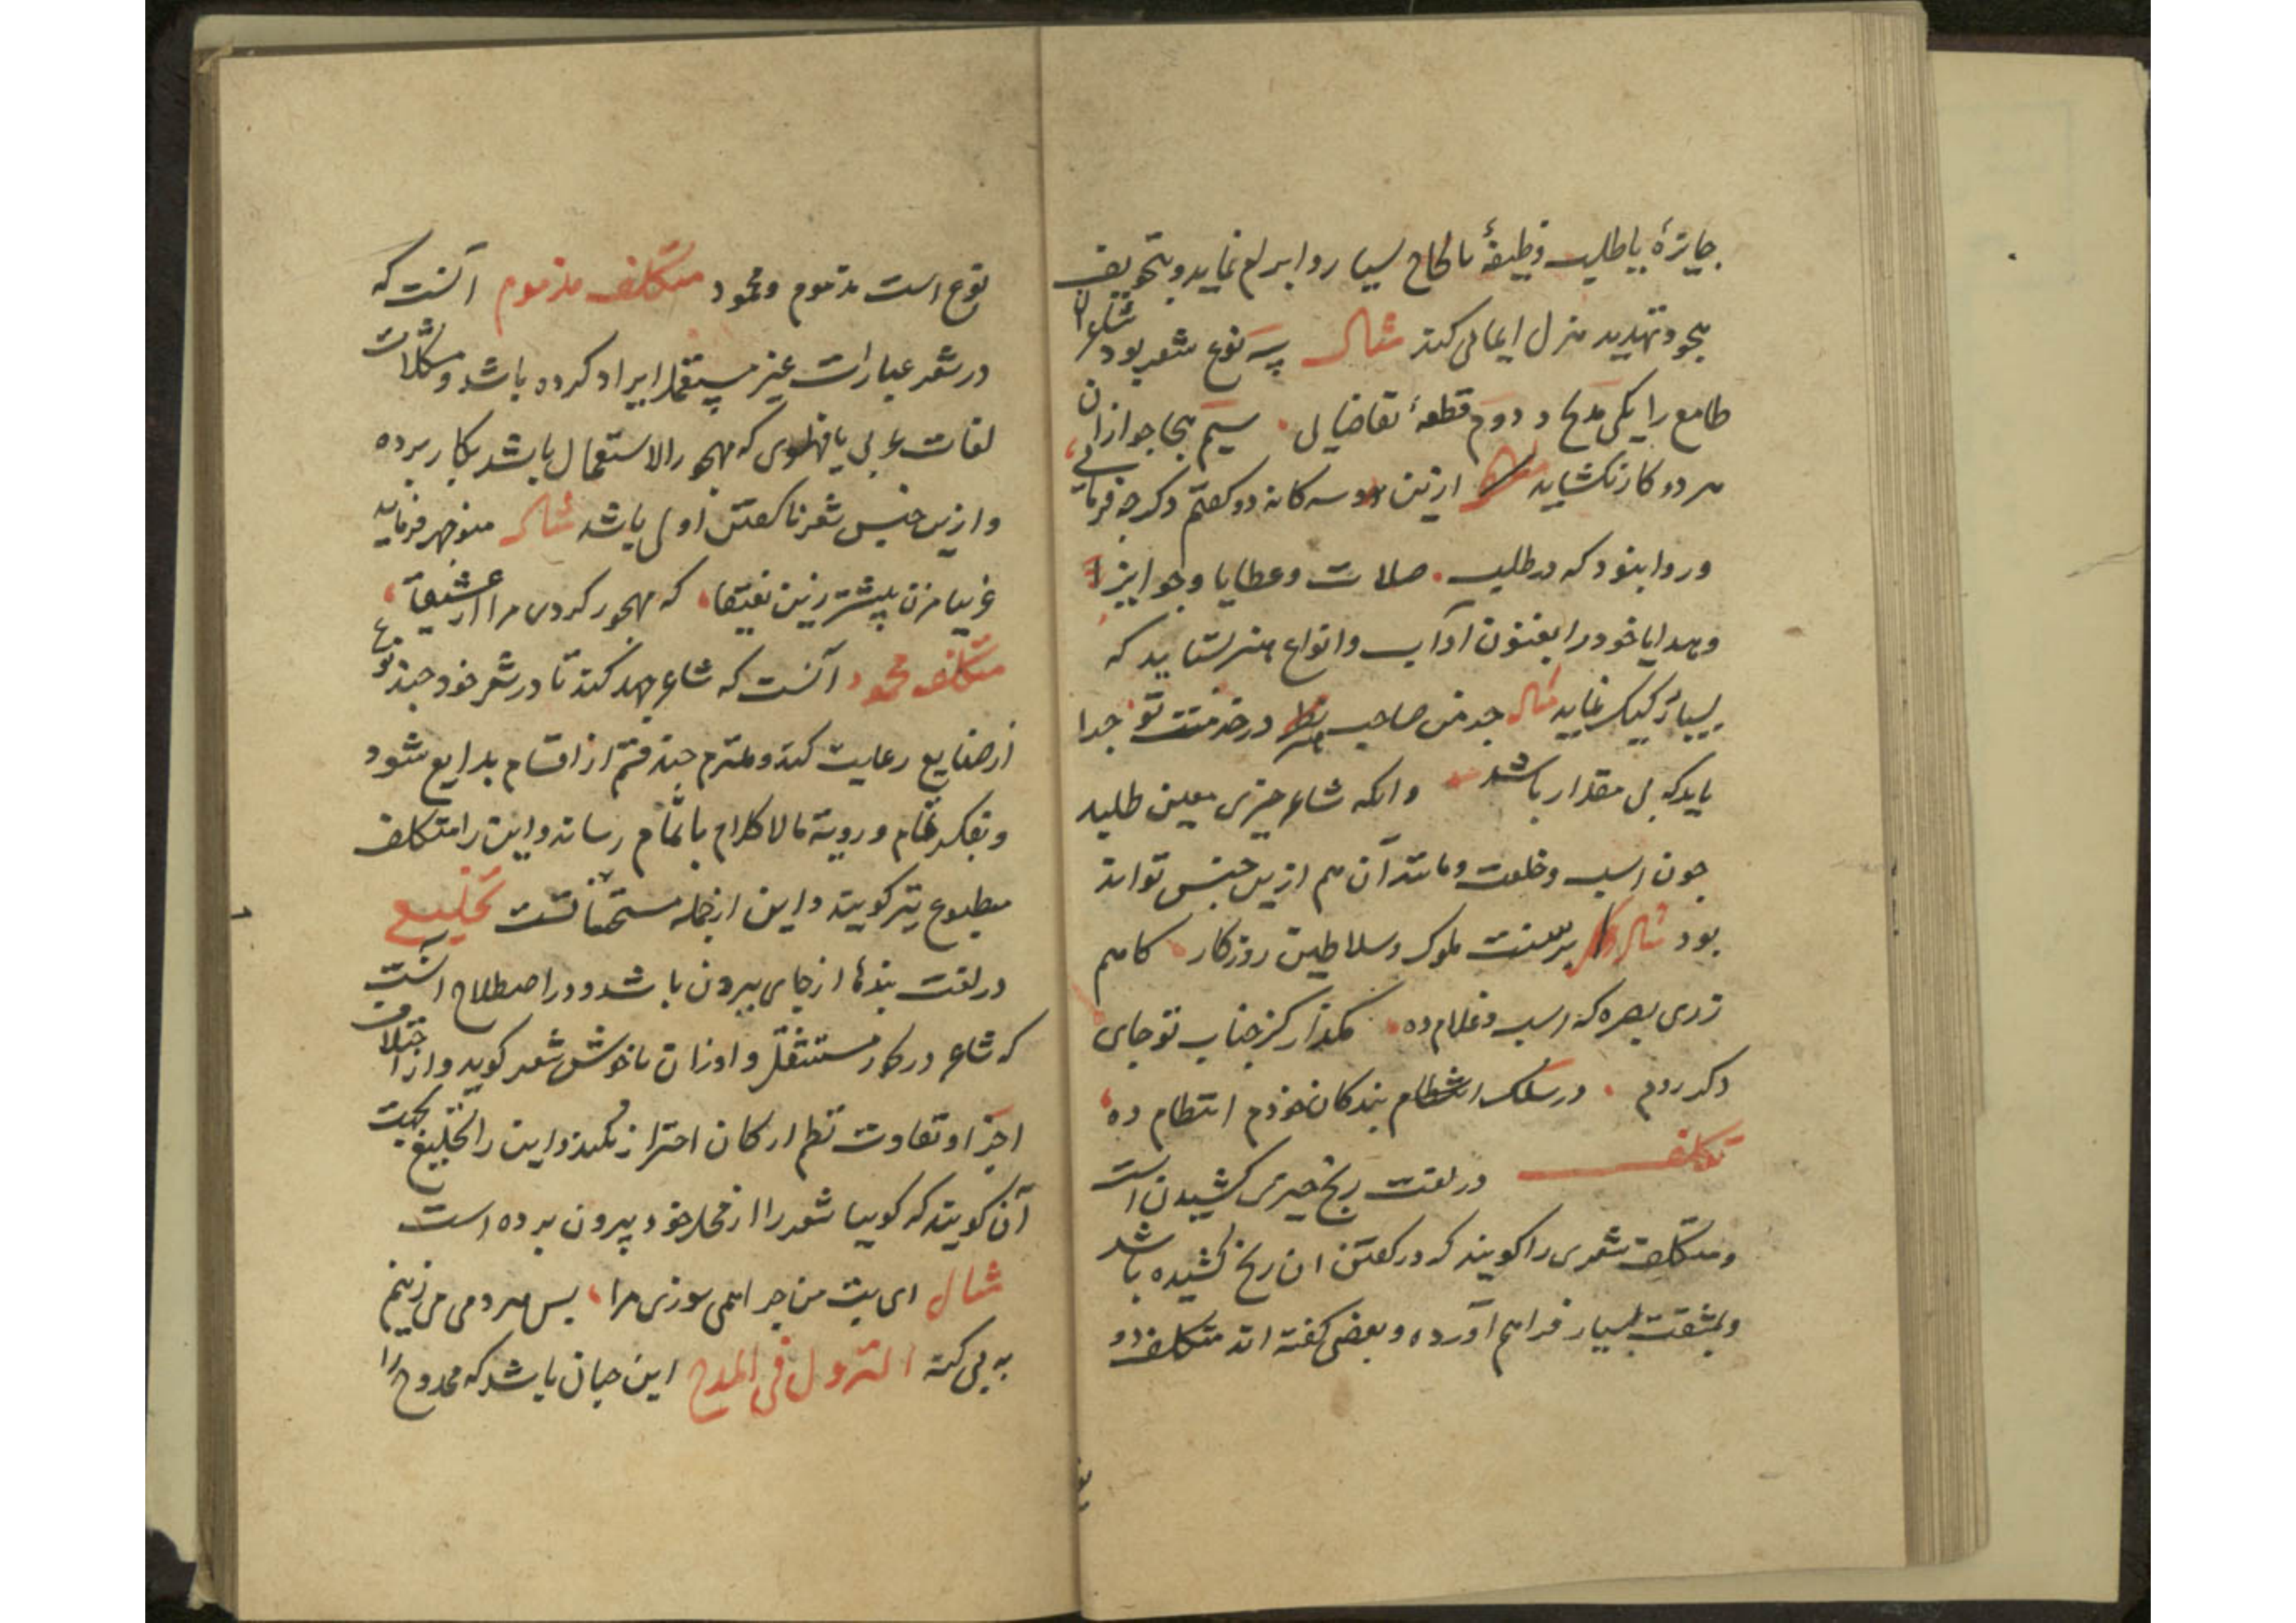 جایزهٔ یا طلب وظیفهٔ بالحاح بسیار و ابرام نماید و بتخویف
هجو و تهدید هزل ایمائی کند مثال سه نوع شعر بود شاعران
طامع را یکی مدیح و دوم قطعهٔ تقاضایی سیم هجا جو ازان
هر دو کار نکشاید ازین سه کانه دو کفتم دکر چه فرمایی
و روا بنود که در طلب صلات و عطایا و جوایز
و هدایا خود را بفنون آداب و انواع هنر بستاید که
بسیار رکیک نماید مثال جو من صاحب هنر در خدمت تو جدا
باید که بی مقدار باشد و انکه شاعر چیزی معین طلبد
چون اسب و خلعت و مانند آن هم ازین جنس تواند
بود مثال بر سنت ملوک و سلاطین روزکار کامم
زری بصره که اسب و غلام ده مکذار کز جناب تو جای
دکر روم در سلک انتظام بندکان خودم انتظام ده
تکلف در لغت رنج چیزی کشیدن است
و متکلف شعری را کویند که در کفتن ان رنج کشیده باشد
و بمشقت بسیار فراهم آورده و بعضی کفته اند متکلف دو
نوع است مذموم و محمود متکلف مذموم آنست که
در شعر عبارات غیر مستعمل ایراد کرده باشد و مشکلات
لغات عربی یا فهلوی که مهجور الاستعمال باشد بکار برده
و ازین جنس شعر ناکفتن اولی باشد مثال منوچهر فرماید
غریبا مزن بیشتر زین نعیقا که مهجور کردی مرا از عشیقا
متکلف محمود آنست که شاعر جهد کند تا در شعر خود چند نوع
از صنایع رعایت کند و ملتزم چند قسم از اقسام بدایع شود
و بفکر تمام و رویة مالا کلام باتمام رساند و این را متکلف
مطبوع نیز کویند و این از جمله مستحسناتست تخلیع
در لغت بندها از جای بیرون باشد و در اصطلاح آنست
که شاعر در کار مستثقل و اوزان ناخوش شعر کوید و از اختلاف
اجزا و تفاوت نظم ارکان احتراز نکند و این را تخلیع بجهت
آن کویند که کویا شعر را از محل خود بیرون برده است
مثال ای بت من چرا همی سوزی مرا بس مردمی می زنیم
به بی کنه النزول فی المدح این چنان باشد که ممدوح را